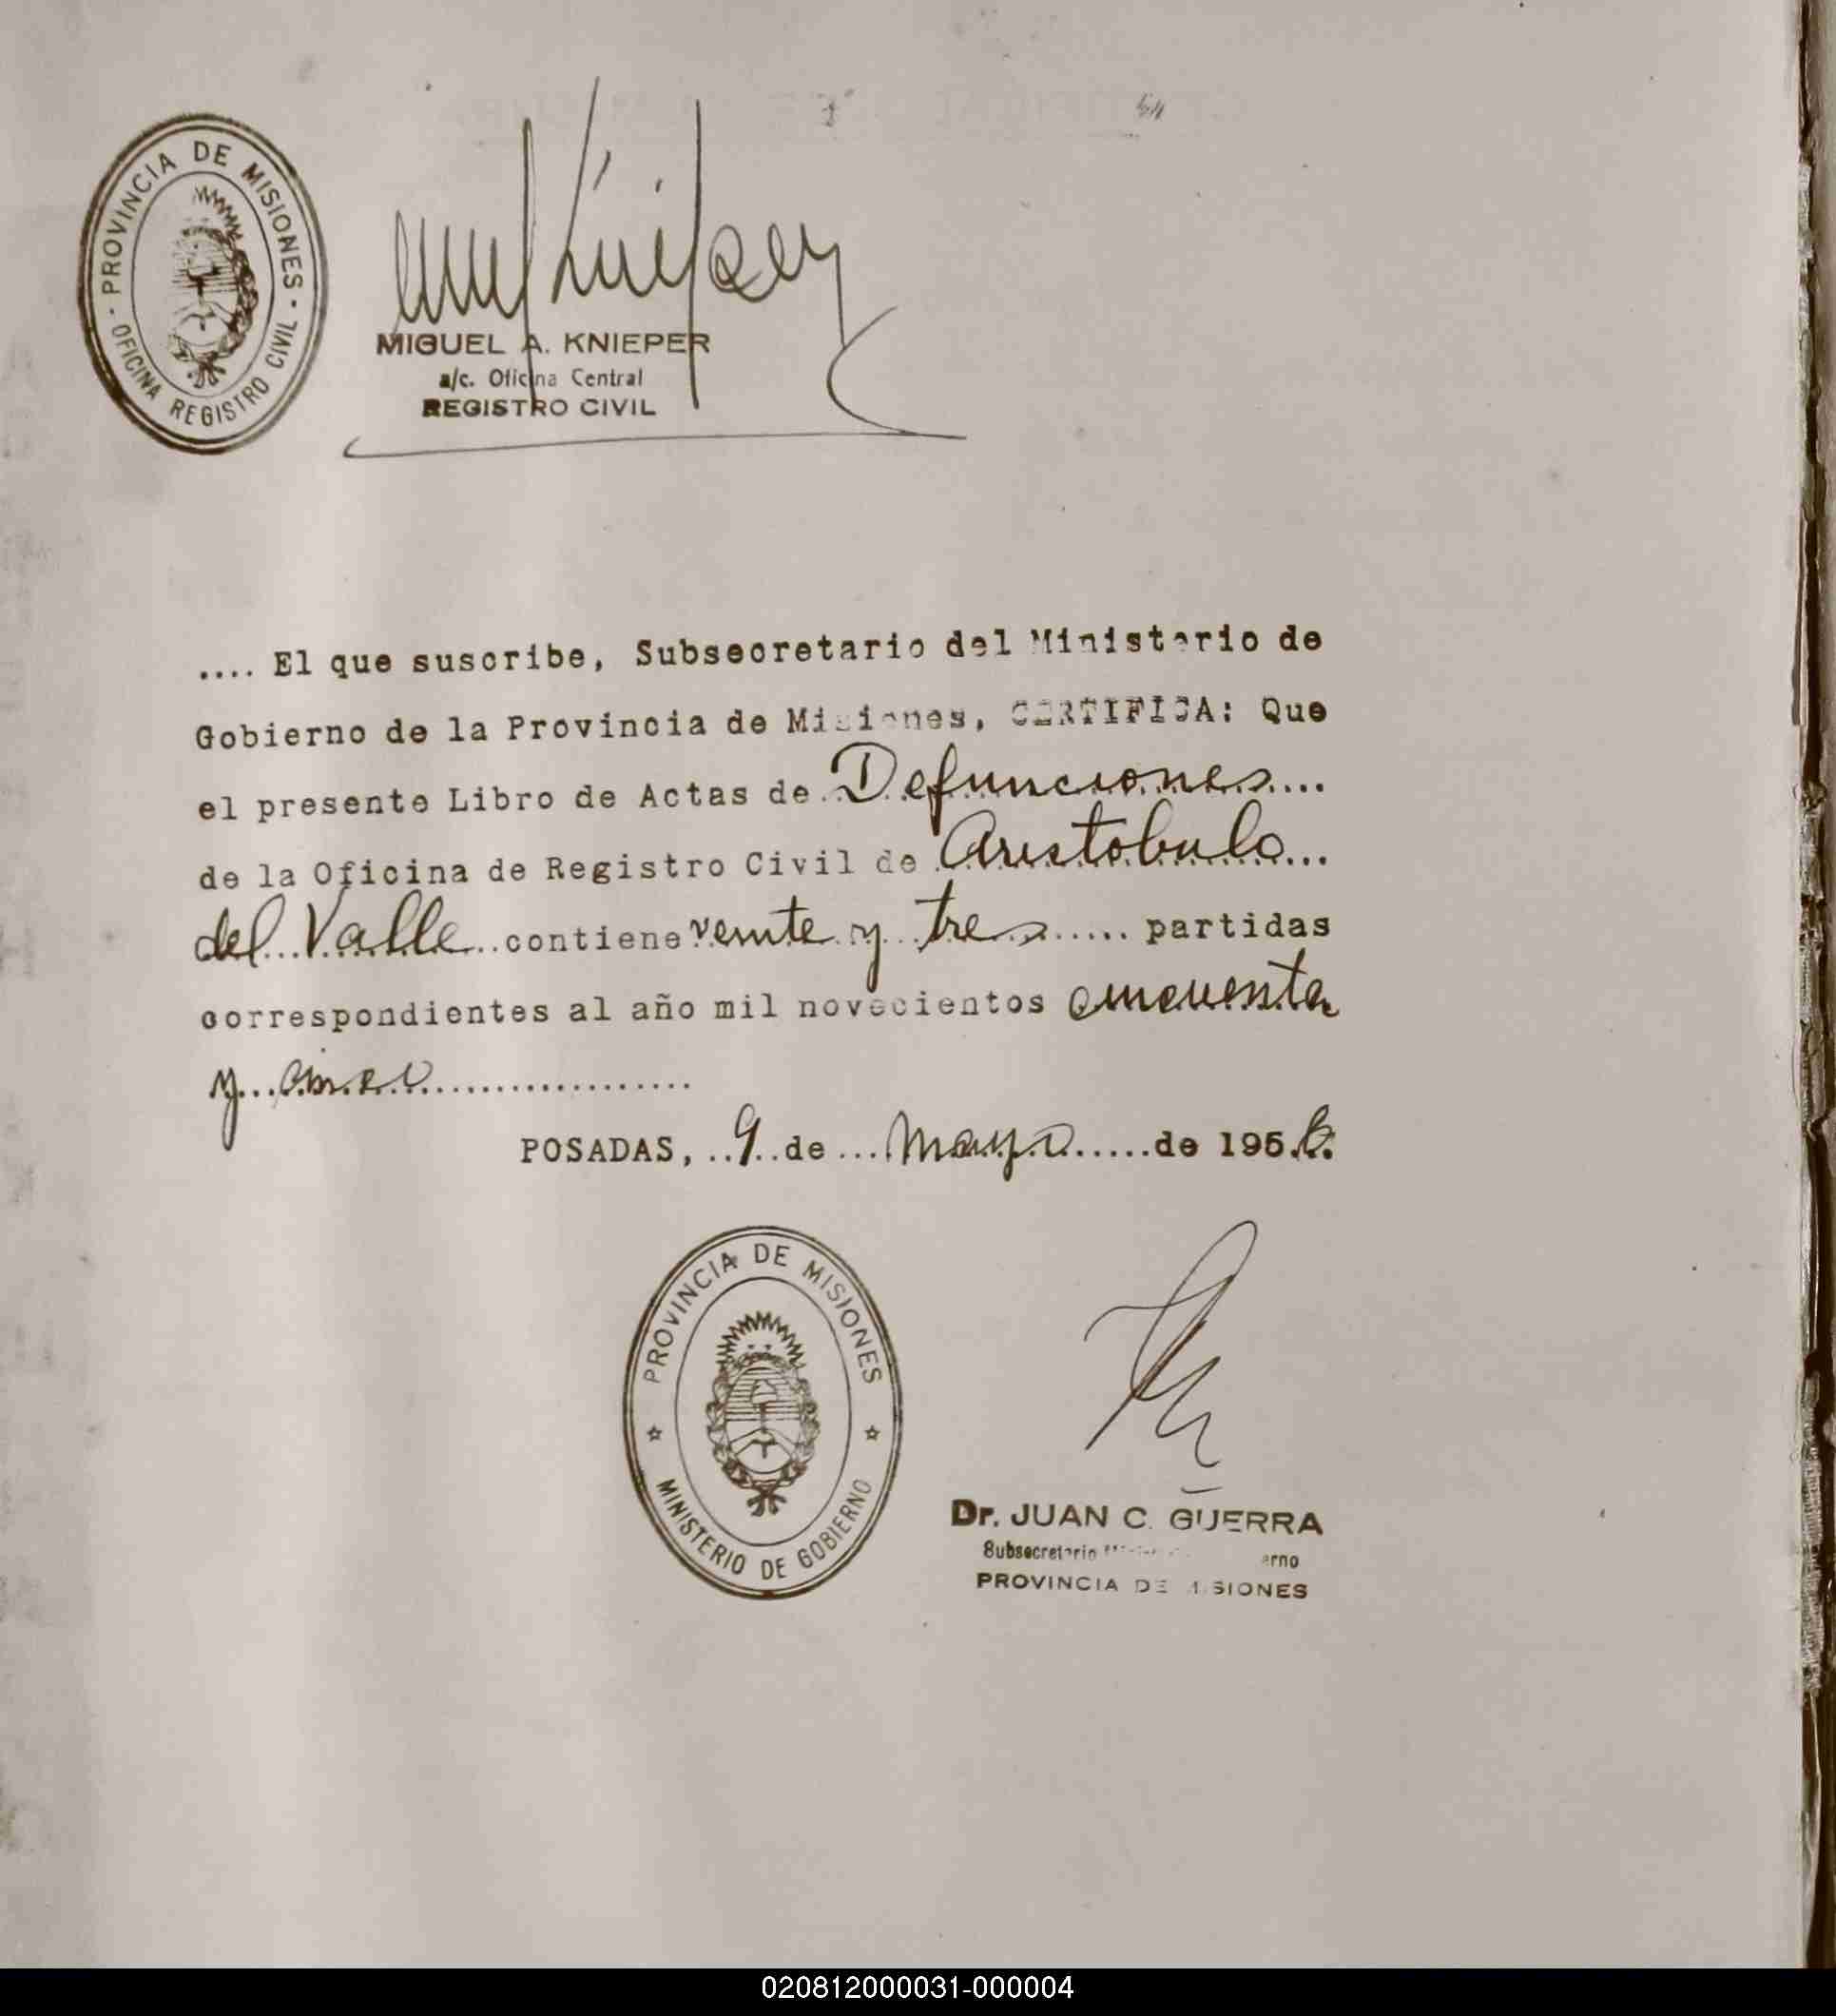 PROVINCIA DE MISIONES
OFICINA REGISTRO CIVIL
MIGUEL A. KNIEPER
a/c. Oficina Central
REGISTRO CIVIL
.... El que suscribe, Subsecretario del Ministerio de
Gobierno de la Provincia de Misiones, CERTIFICA: Que
el presente Libro de Actas de Defunciones....
de la Oficina de Registro Civil de Aristobulo...
del Valle contiene veinte y tres..... partidas
correspondientes al año mil novecientos cincuenta
y cinco..................
POSADAS, ..9..de ...Mayo.....de 1956.
PROVINCIA DE MISIONES
MINISTERIO DE GOBIERNO
Dr. JUAN C. GUERRA
Subsecretario erno
PROVINCIA DE MISIONES
020812000031-000004